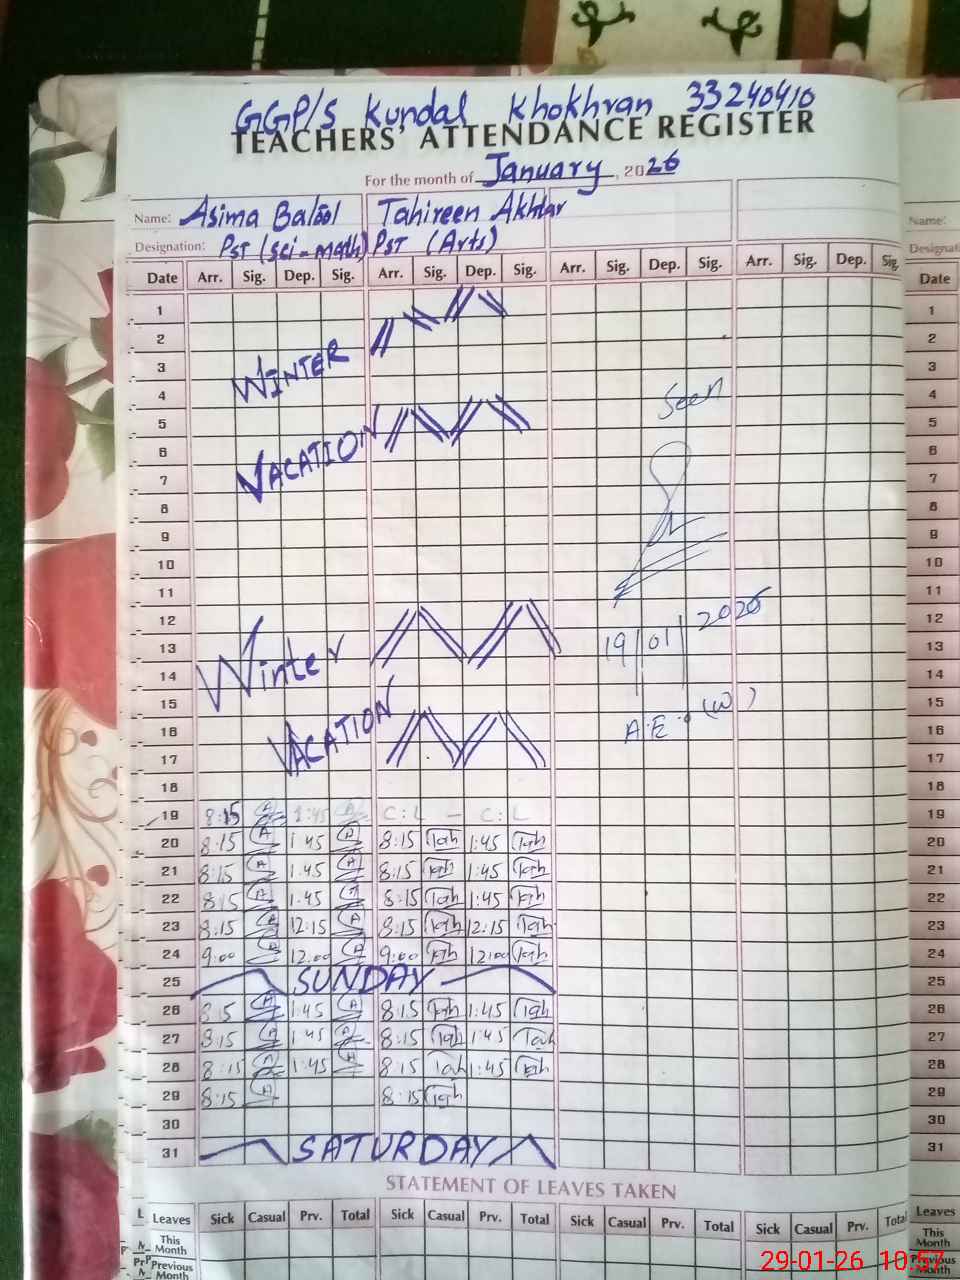 GGP/S Kundal Khokhran 33240410
TEACHERS' ATTENDANCE REGISTER
For the month of January, 2026
Name: Asima Batool Tahireen Akhtar
Designation: PST (Sci-math) PST (Arts)
Date Arr. Sig. Dep. Sig. Arr. Sig. Dep. Sig. Arr. Sig. Dep. Sig. Arr. Sig. Dep. Sig.
1
2
3 WINTER
4 Seen
5
6
7 VACATION
8
9
10
11
12
13 19/01/2026
14 Winter
15
16 VACATION A.E.O (W)
17
18
19 8:15 A 1:45 A C:L - C:L
20 8:15 A 1:45 A 8:15 Tah 1:45 Tah
21 8:15 A 1:45 A 8:15 Tah 1:45 Tah
22 8:15 A 1:45 A 8:15 Tah 1:45 Tah
23 8:15 A 12:15 A 8:15 Tah 12:15 Tah
24 9:00 A 12:00 A 9:00 Tah 12:00 Tah
25 SUNDAY
26 8:15 A 1:45 A 8:15 Tah 1:45 Tah
27 8:15 A 1:45 A 8:15 Tah 1:45 Tah
28 8:15 A 1:45 A 8:15 Tah 1:45 Tah
29 8:15 A 8:15 Tah
30
31 SATURDAY
STATEMENT OF LEAVES TAKEN
Leaves Sick Casual Prv. Total Sick Casual Prv. Total Sick Casual Prv. Total Sick Casual Prv. Total
This Month
Previous Month
Name:
Date
1
2
3
4
5
6
7
8
9
10
11
12
13
14
15
16
17
18
19
20
21
22
23
24
25
26
27
28
29
30
31
Leaves
This Month
Previous Month
29-01-26 10:57